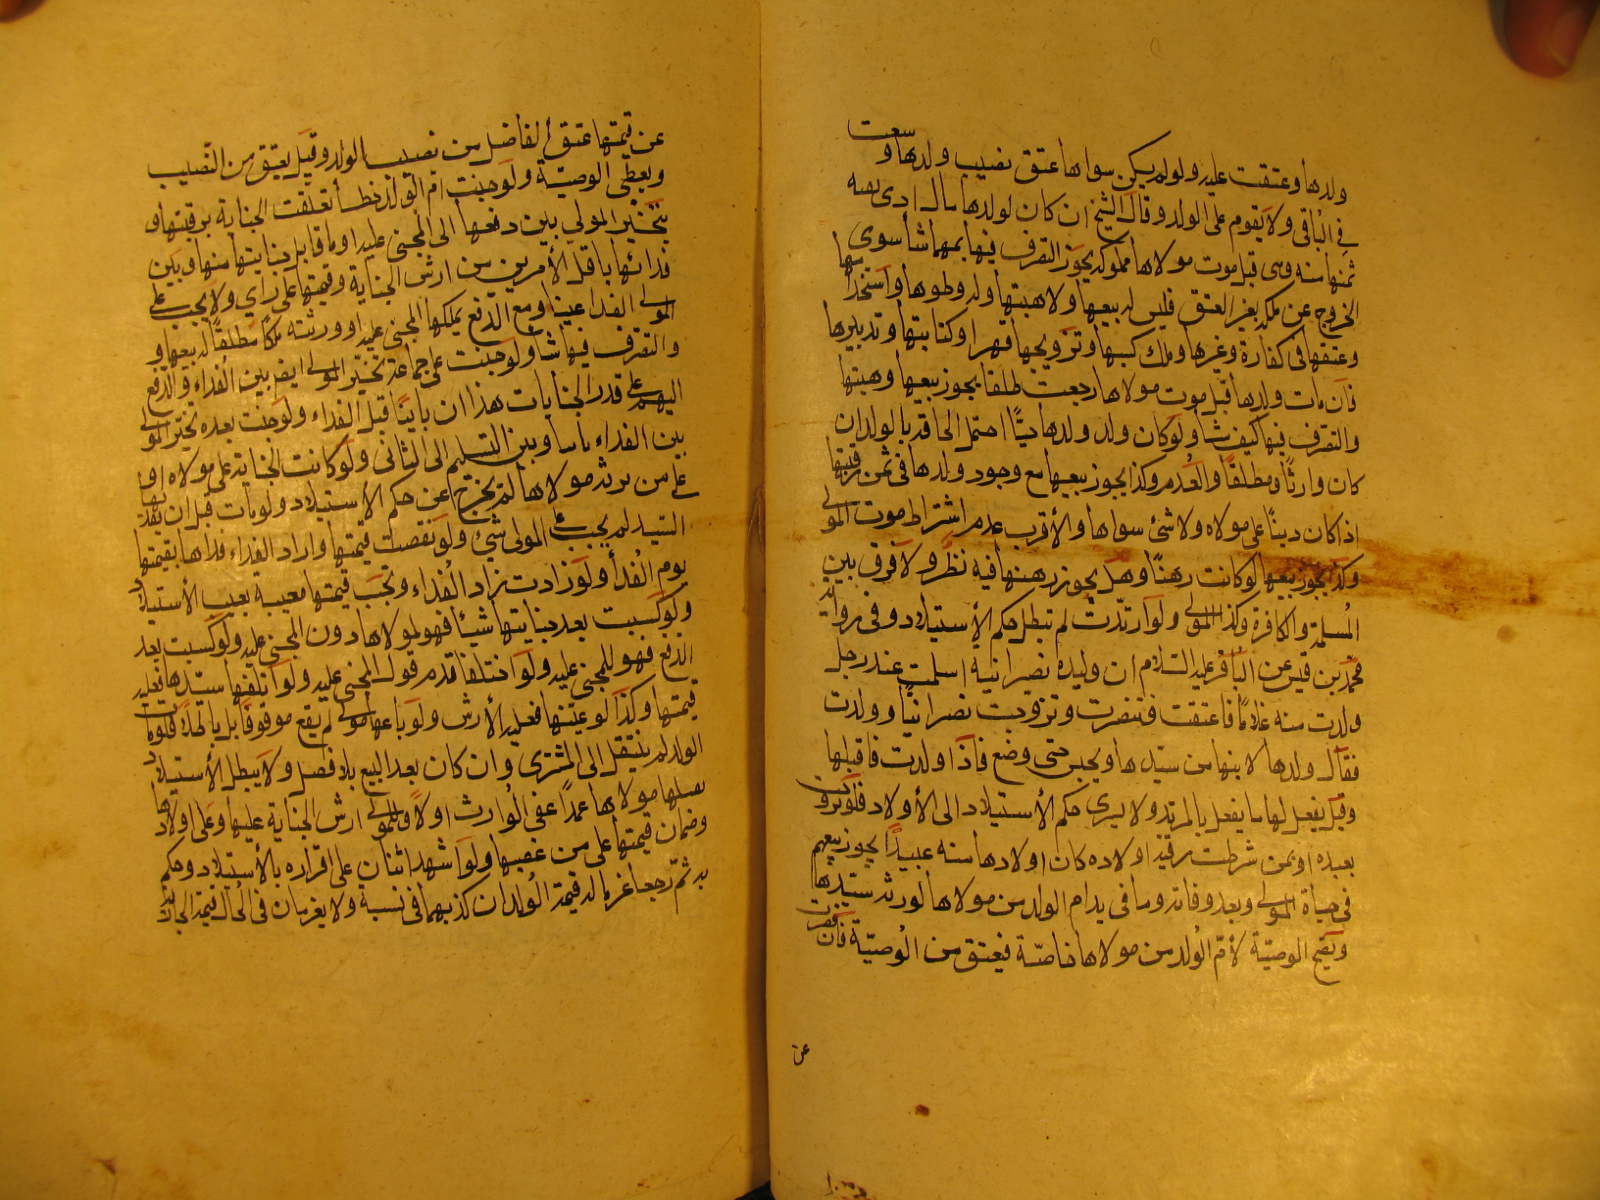 ولدها وعتقت عليه ولو لم يكن سواها عتق نصيب ولدها وسعت
في الباقي ولا يقوم على الولد وقال الشيخ ان كان لولدها مال ادى بقية
ثمنها منه وهي قبل موت مولاها مملوكة يجوز التصرف فيها بمهما شأ سوى
الخروج عن ملكه بغير العتق فليس له بيعها ولا هبتها وله وطوها واستخدامها
وعتقها في كفارة وغيرها وملك كسبها وتزويجها قهرا وكتابتها وتدبيرها
فان مات ولدها قبل موت مولاها رجعت طلقا يجوز بيعها وهبتها
والتصرف فيها كيف شأ ولو كان ولد ولدها حيًّا احتمل الحاقه بالولد ان
كان وارثًا ومطلقًا والعدم وكذا يجوز بيعها مع وجود ولدها في ثمن رقبتها
اذا كان دينًا على مولاه ولا شئ سواها والأقرب عدم اشتراط موت المولى
وكذا يجوز بيعها لو كانت رهنًا وهل يجوز رهنها فيه نظر ولا فرق بين
المسلمة والكافرة وكذا المولى ولو ارتدت لم تبطل حكم الأستيلاد وفي رواية
محمد بن قيس عن الباقر عليه السلام ان وليدة نصرانية اسلمت عند رجل
ولدت منه غلامًا فاعتقت فتنصرت وتزوجت نصرانيًا وولدت
فقال ولدها لابنها من سيدها ويحبس حتى وضع فاذا ولدت فاقتلها
وقيل يفعل لها ما يفعل بالمرتد ولا يسري حكم الأستيلاد الى الأولاد فلو تزوجت
بعبده او بمن شرطت رقية اولاده كان اولادها منه عبيدًا يجوز بيعهم
في حياة المولى وبعد وفاته وما في يد ام الولد من مولاها لورثة سيدها
ويصح الوصية لأم الولد من مولاها خاصة فيعتق من الوصية فان قصرت
عن
عن قيمتها عتق الفاضل من نصيب الولد وقيل يعتق من النصيب
ويعطى الوصية ولو جنت ام الولد خطأ تعلقت الجناية برقبتها و
يتخير المولى بين دفعها الى المجني عليه او ما قابل جنايتها منها وبين
فدائها باقل الأمرين من ارش الجناية وقيمتها على رأي ولا يجب على
المولى الفدا عينا ومع الدفع يملكها المجني عليه او ورثته ملكا مطلقًا له بيعها و
والتصرف فيها شأ ولو جنت على جماعة تخير المولى ايضا بين الفداء والدفع
اليهم على قدر الجنايات هذا ان يابينا قبل الفداء ولو جنت بعده تخير المولى
بين الفداء ثانيا وبين التسليم الى الثاني ولو كانت الجناية على مولاه او
على من يرثه مولاها لم يخرج عن حكم الأستيلاد ولو مات قبل ان يفديها
السيد لم يجب على المولى شئ ولو نقصت قيمتها واراد الفداء فداها بقيمتها
يوم الفدأ ولو زادت زاد الفداء وتجب قيمتها معيبة بعيب الأستيلاد
ولو كسبت بعد جنايتها شيئًا فهو لمولاها دون المجني عليه ولو كسبت بعد
الدفع فهو للمجني عليه ولو اختلفا قدم قول المجني عليه ولو اتلفها سيدها فعليه
قيمتها وكذا لو عيبها فعليه الأرش ولو باعها مولى لم يقع موقوفًا بل باطلا فلو مات
الولد لم ينتقل الى المشتري وان كان بعد البيع بلا فصل ولا يبطل الأستيلاد
بقتلها مولاها عمدًا عفى الوارث اولا وللمولى ارش الجناية عليها وعلى اولادها
وضمان قيمتها على من غصبها ولو شهد اثنان على اقراره بالأستيلاد وحكم
به ثم رجعا غرما له قيمة الولد ان كذبهما في نسبه ولا يغرمان في الحال قيمة الجارية